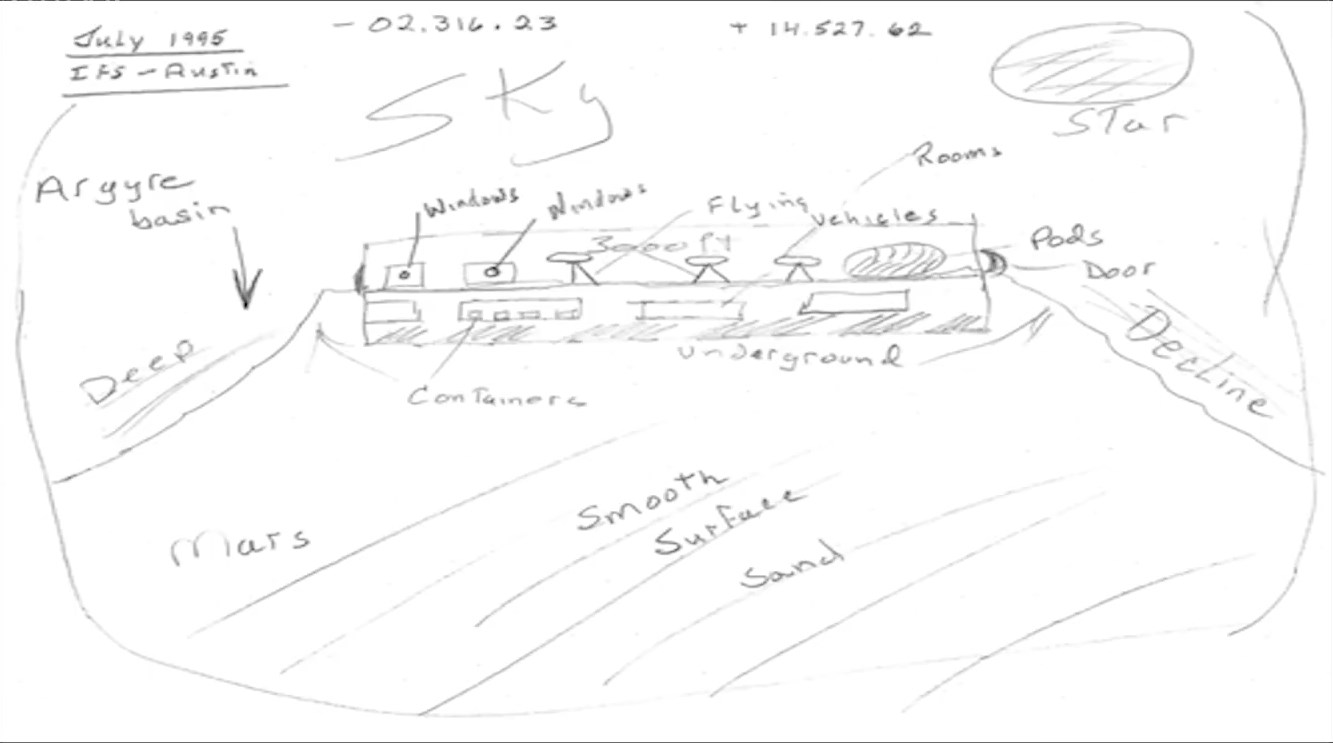 July 1995
IFS - Austin
- 02.316.23
+ 14.527.62
Sky
Star
Argyre
basin
Windows
Windows
Flying
vehicles
Rooms
3000 ft
Pods
Door
Deep
Containers
underground
Decline
Mars
Smooth
Surface
Sand